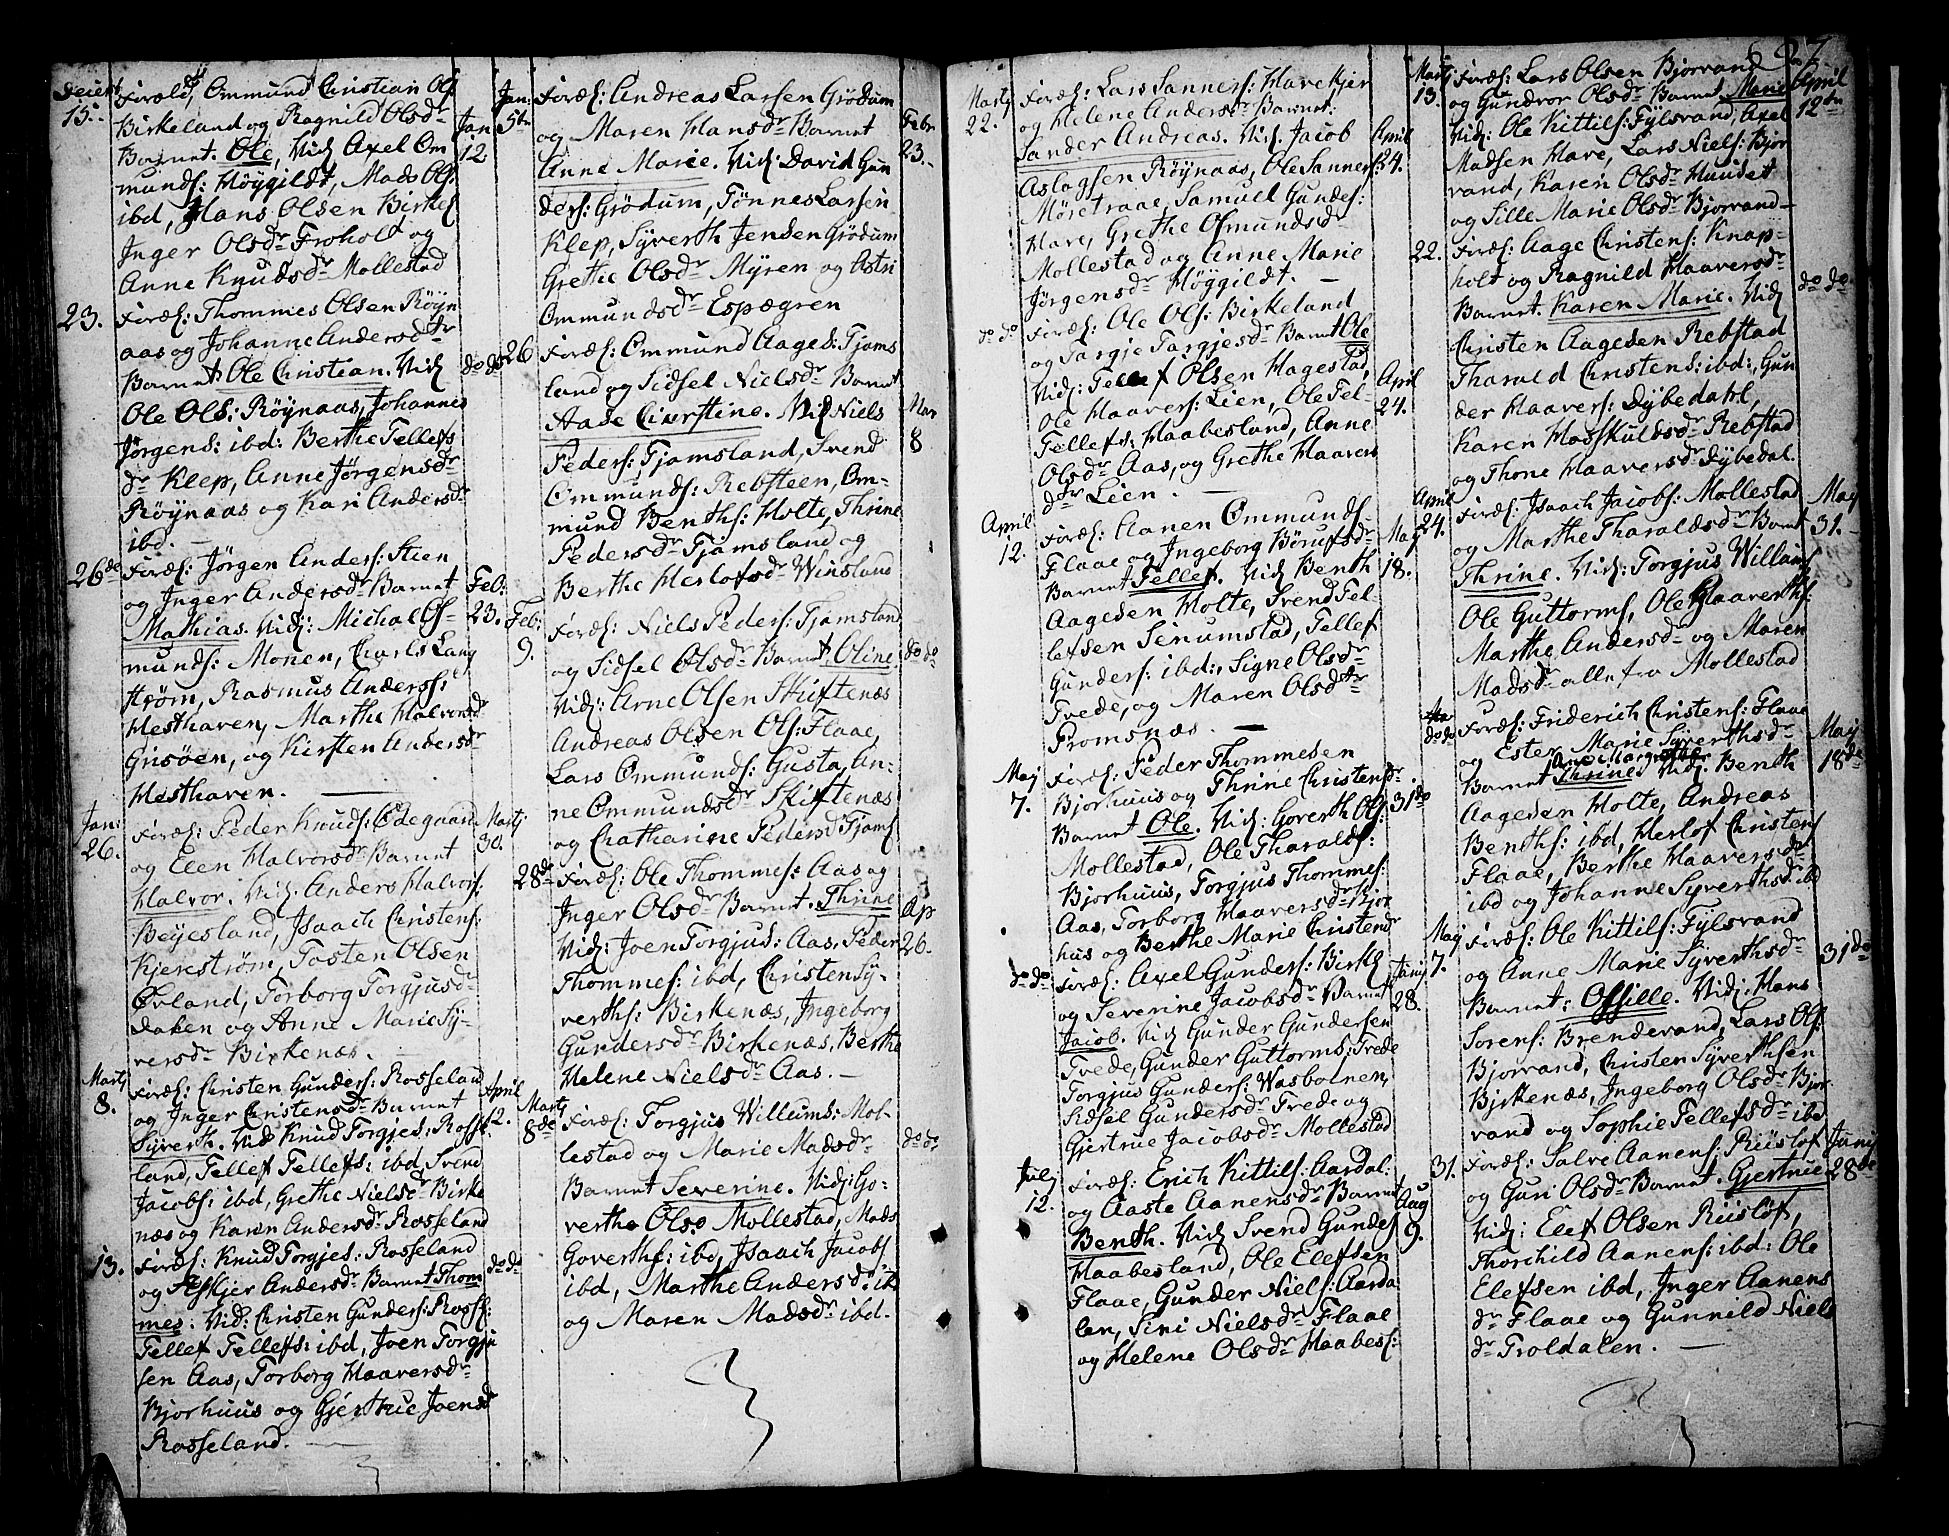 Deiebr
15.
Foræld, Ommund Christian Ols
Birkeland og Ragnild Olsdr
Barnet. Ole, Vid, Axel Om
munds: Höygildt, Mads Ols:
ibd, Hans Olsen Birkel
Inger Olsdr Froholt og
Anne Knudsdr Mollestad
Jan
12
23.
Foræl: Thommes Olsen Röyn
aas og Johanne Andersdtr
Barnet Ole Christian. Vid
Ole Ols: Röynaas, Johannes
Jørgens: ibd: Berthe Tellefs
dr Klep, Anne Jørgensdr
Röynaas og Kari Andersdr
ibd. —
do do
26de
Foræl: Jörgen Anders: Steen
og Inger Andersdr Barnet
Mathias. Vid: Michal Os-
munds: Monen, Charls Lang
ström, Rasmus Anderss:
Hesthaven, Marthe Halvorsdr
Grisöen, og Kirsten Andersdr
Hesthaven. —
Feb:
23.
Jan:
26.
Foræl: Peder Knuds: Ødegaard
og Elen Halvorsdr Barnet
Halvor. Vid. Anders Halvors:
Beyesland, Isaach Christens:
Kjerestrøm, Tosten Olsen
Øvland, Torborg Torgjusdr
Daken og Anne Marie Sy-
versdr Birkenæs.
Martj
30.
Martj
8.
Foræl: Christen Gunders: Rosseland
og Inger Christensdr Barnet
Syverth. Vid Knud Torgjes: Rosse
land, Tellef Tellefs: ibd, Svend
Jacobs: ibd, Grethe Nielsdr Birke
næs og Karen Andersdr Rosseland
April
12.
13.
Foræl: Knud Torgjes: Rosseland
og Askjer Andersdr Barnet Thom
mes. Vid: Christen Gunders: Ross:
Tellef Tellefs: ibd, Joen Torgju
sen Aas, Torborg Haaversdr
Bjorhuus og Gjertrue Joensdr
Rosseland. —
do do
Jan:
5te
Foræl: Andreas Larsen Grödum
og Maren Hansdr Barnet
Anne Marie. Vid: David Gun
ders: Grödum, Tönnes Larsen
Klep, Syverth Jensen Grödum
Grethe Olsdr Myren og Astri
Ommundsdr Espegren
Febr
23.
26
Foræl: Ommund Aages: Tjams
land og Sidsel Nielsdr Barnet
Aase Chirstine. Vid Niels
Peders: Tjamsland, Svend
Ommunds: Rebsteen, Om-
mund Benths: Holte, Thrine
Pedersdr Tjamsland og
Berthe Herlofsdr Winsland
Mar
8
Feb:
9.
Foræl: Niels Peders: Tjamsland
og Sidsel Olsdr Barnet, Oline
Vid: Arne Olsen Skiftenæs
Andreas Olsen Ols: Flaae,
Lars Ommunds: Gusta, An-
ne Ommundsdr Skiftenæs
og Chatharine Pedersd Tjamsl
do do
28de
Foræl: Ole Thommes: Aas og
Inger Olsdr Barnet. Thrine
Vid: Joen Torgjus: Aas, Peder
Thommes: ibd, Christen Sy-
verths: Birkenæs, Ingeborg
Gundersdr Birkenæs, Berthe
Helene Nielsdr Aas. —
Ap
26.
Martj
8de
Foræl: Torgjus Willums: Mol-
lestad og Marie Madsdr
Barnet Severine. Vid: Go-
verthe Olss Mollestad, Mads
Goverths: ibd, Isaach Jacobs
ibd, Marthe Andersd: ib
og Maren Madsdr ibd.
do do
627.
Martj
22.
Foræl: Lars Sanners: Have Kjer
og Helene Andersdr Barnet:
Sander Andreas. Vid. Jacob
Aslagsen Röynaas, Ole Sanners
Möretraae, Samuel Gundes:
Have, Grethe Osmundsdr
Mollestad og Anne Marie
Jørgensdr Höygildt. —
April
24.
do do
Foræl: Ole Ols: Birkeland
og Targje Targjesdr Barnet Ole
Vid: Tellef Olsen Hagestad,
Ole Haavers: Lien, Ole Tel-
Tellefs: Haabesland, Anne
Olsdr Aas, og Grethe Haavers
dtr Lien. —
April
24.
April
12.
Foræl: Aanen Ommunds
Flaae og Ingeborg Börufsdr
Barnet Tellef. Vid Benth
Aagesen Holte, Svend Tel-
lefsen Senumstad, Tellef
Gunders: ibd:, Signe Olsdr
Trede, og Maren Olsdtr
Fromsnæs. —
May
18.
Maj
7.
Foræl: Peder Thommesen
Bjorhuus og Thrine Christensdr.
Barnet Ole. Vid: Goverth Ols:
Mollestad, Ole Tharalds:
Bjorhuus, Torgjus Thommes:
Aas, Torborg Haaversdr Bjor
hus og Berthe Marie Christensdr
31do
do do
Foræl: Axel Gunders: Birkl
og Severine Jacobsdr Barnet
Jacob. Vid Gunder Gundersen
Trede, Gunder Guttorms: Trede
Torgjus Gunders: Wasbotnen,
Sidsel Gundersdr Trede og
Gjertrue Jacobsdr Mollestad
Junj
28.
Julj
12.
Foræl: Erich Kittils: Aardal:
og Aaste Aanensdr Barnet
Benth. Vid Svend Gundes
Haabesland, Ole Elefsen
Flaae, Gunder Niels: Aarda
len, Sini Nielsdr Flaae
og Helene Olsdr Haabesl:
Aug
9.
Martj
13.
Foræl: Lars Olsen Bjorvand
og Gundvor Olsdr Barnet Marie
Vid: Ole Kittils: Fylsvand, Axel
Madsen Have, Lars Niels: Bjor
vand, Karen Olsdr Hundet
og Sille Marie Olsdr Bjorvand—
April
12te
22.
Foræl: Aage Christens: Knap-
holt og Ragnild Haaversdr
Barnet. Karen Marie. Vid
Christen Aagesen Rebstad
Tharald Christens: ibd:, Gun
der Haavers: Dybedahl,
Karen Hasskuldsdr Rebstad
og Thone Haaversdr Dybedal.
do do
April
24.
Foræl: Isaach Jacobs: Mollestad
og Marthe Tharaldsdr Barnet
Thrine. Vid: Torgjus Willums
Ole Guttorms, Ole Haaverths:
Marthe Andersdr og Maren
Madsdr alle fra Mollestad
May
31.
do do
Foræl: Friderich Christens: Flaae
og Ester Marie Syverthsdr
Barnet Ane Margrethe Thrine Vid: Benth
Aagesen Holte, Andreas
Benths: ibd, Herlof Christens
Flaae, Berthe Haaversdr
ibd og Johanne Syverthsdr ibd
Maij
18de
Maj
7.
Foræl: Ole Kittils: Fylsvand
og Anne Marie Syverthsdr
Barnet: Ossille. Vid: Hans
Sorens: Brendevand, Lars Ols:
Bjorvand, Christen Syverthsen
Bjrkenæs, Ingeborg Olsdr Bjor
vand og Sophie Tellefsdr ibd
31do
31.
Foræl: Salve Aanens: Riisløf
og Guri Olsdr Barnet. Gjertrue
Vid: Elef Olsen Riisløf,
Thorchild Aanens: ibd: Ole
Elefsen ibd, Inger Aanens
dr Flaae og Gunneld Niels
dr Troldalen. —
Junj
28de